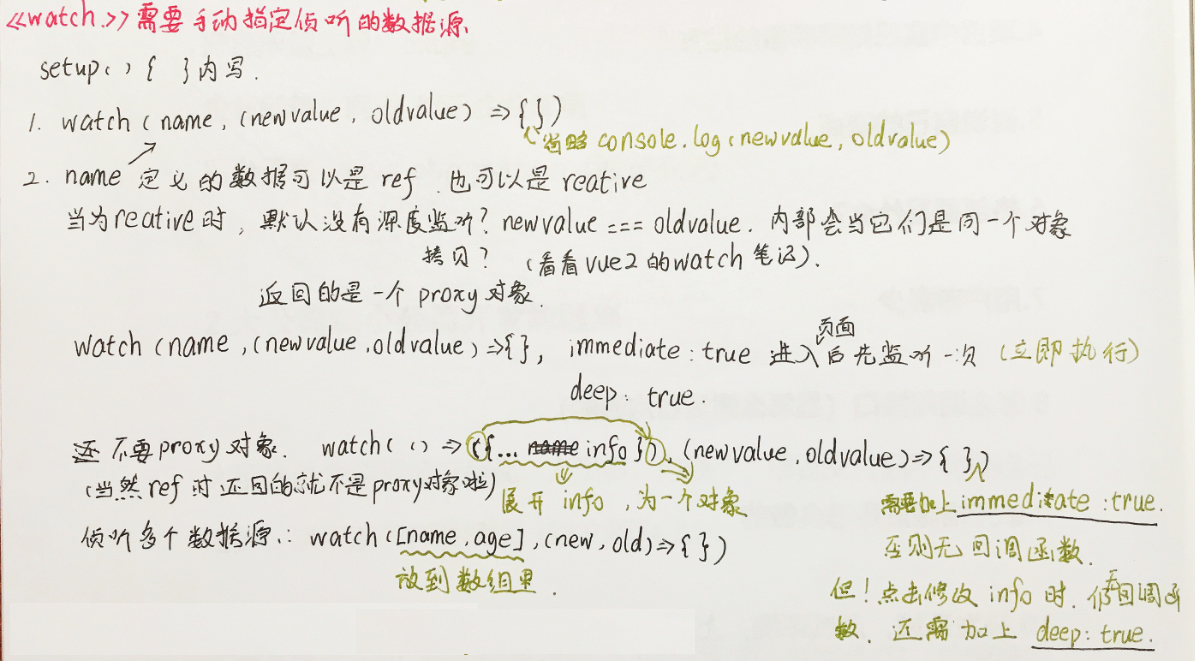 《watch》需要手动指定侦听的数据源、
setup() { }内写.
1. watch(name, (newvalue, oldvalue) => { })
省略console.log(newvalue, oldvalue)
2. name 定义的数据可以是 ref 也可以是 reative
当为reative时, 默认没有深度监听? newvalue === oldvalue. 内部会当它们是同一个对象
拷贝? (看看vue2的watch笔记).
返回的是一个 proxy 对象.
页面
watch (name, (newvalue, oldvalue) => { }, immediate: true 进入后先监听一次 (立即执行)
deep: true.
还不要proxy对象. watch( () => ({... name info}), (newvalue, oldvalue) => { })
(当然ref时还回的就不是proxy对象啦) 展开 info, 为一个对象 需要加上immediate: true.
侦听多个数据源: watch([name, age], (new, old) => { }) 否则无回调函数.
放到数组里. 但! 点击修改 info 时. 仍无回调函
数. 还需加上 deep: true.